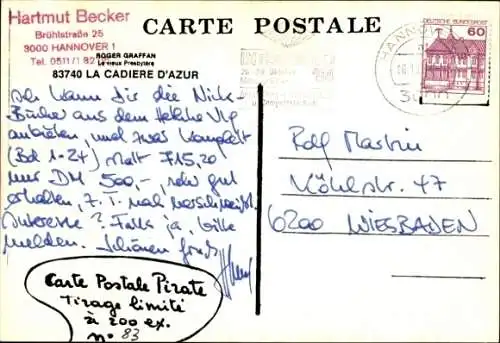 Hartmut Becker
Brühlstraße 25
3000 HANNOVER 1
Tel. 0511/1 82
CARTE POSTALE
ROGER GRAFFAN
Le vieux Presbytère
83740 LA CADIERE D'AZUR
HANNOVER
DEUTSCHE BUNDESPOST
60
Ich kann Dir die Nick-
Bücher aus dem Hethke Vlg
anbieten, und zwar komplett
(Bd 1-24) statt 715,20
nur DM 500,-, sehr gut
erhalten, z.T. noch verschweißt.
Interesse? Falls ja, bitte
melden. Schönen Gruß
Rolf
Köhlstr. 47
6200 WIESBADEN
Carte Postale Pirate
Tirage limité
à 200 ex.
n° 83